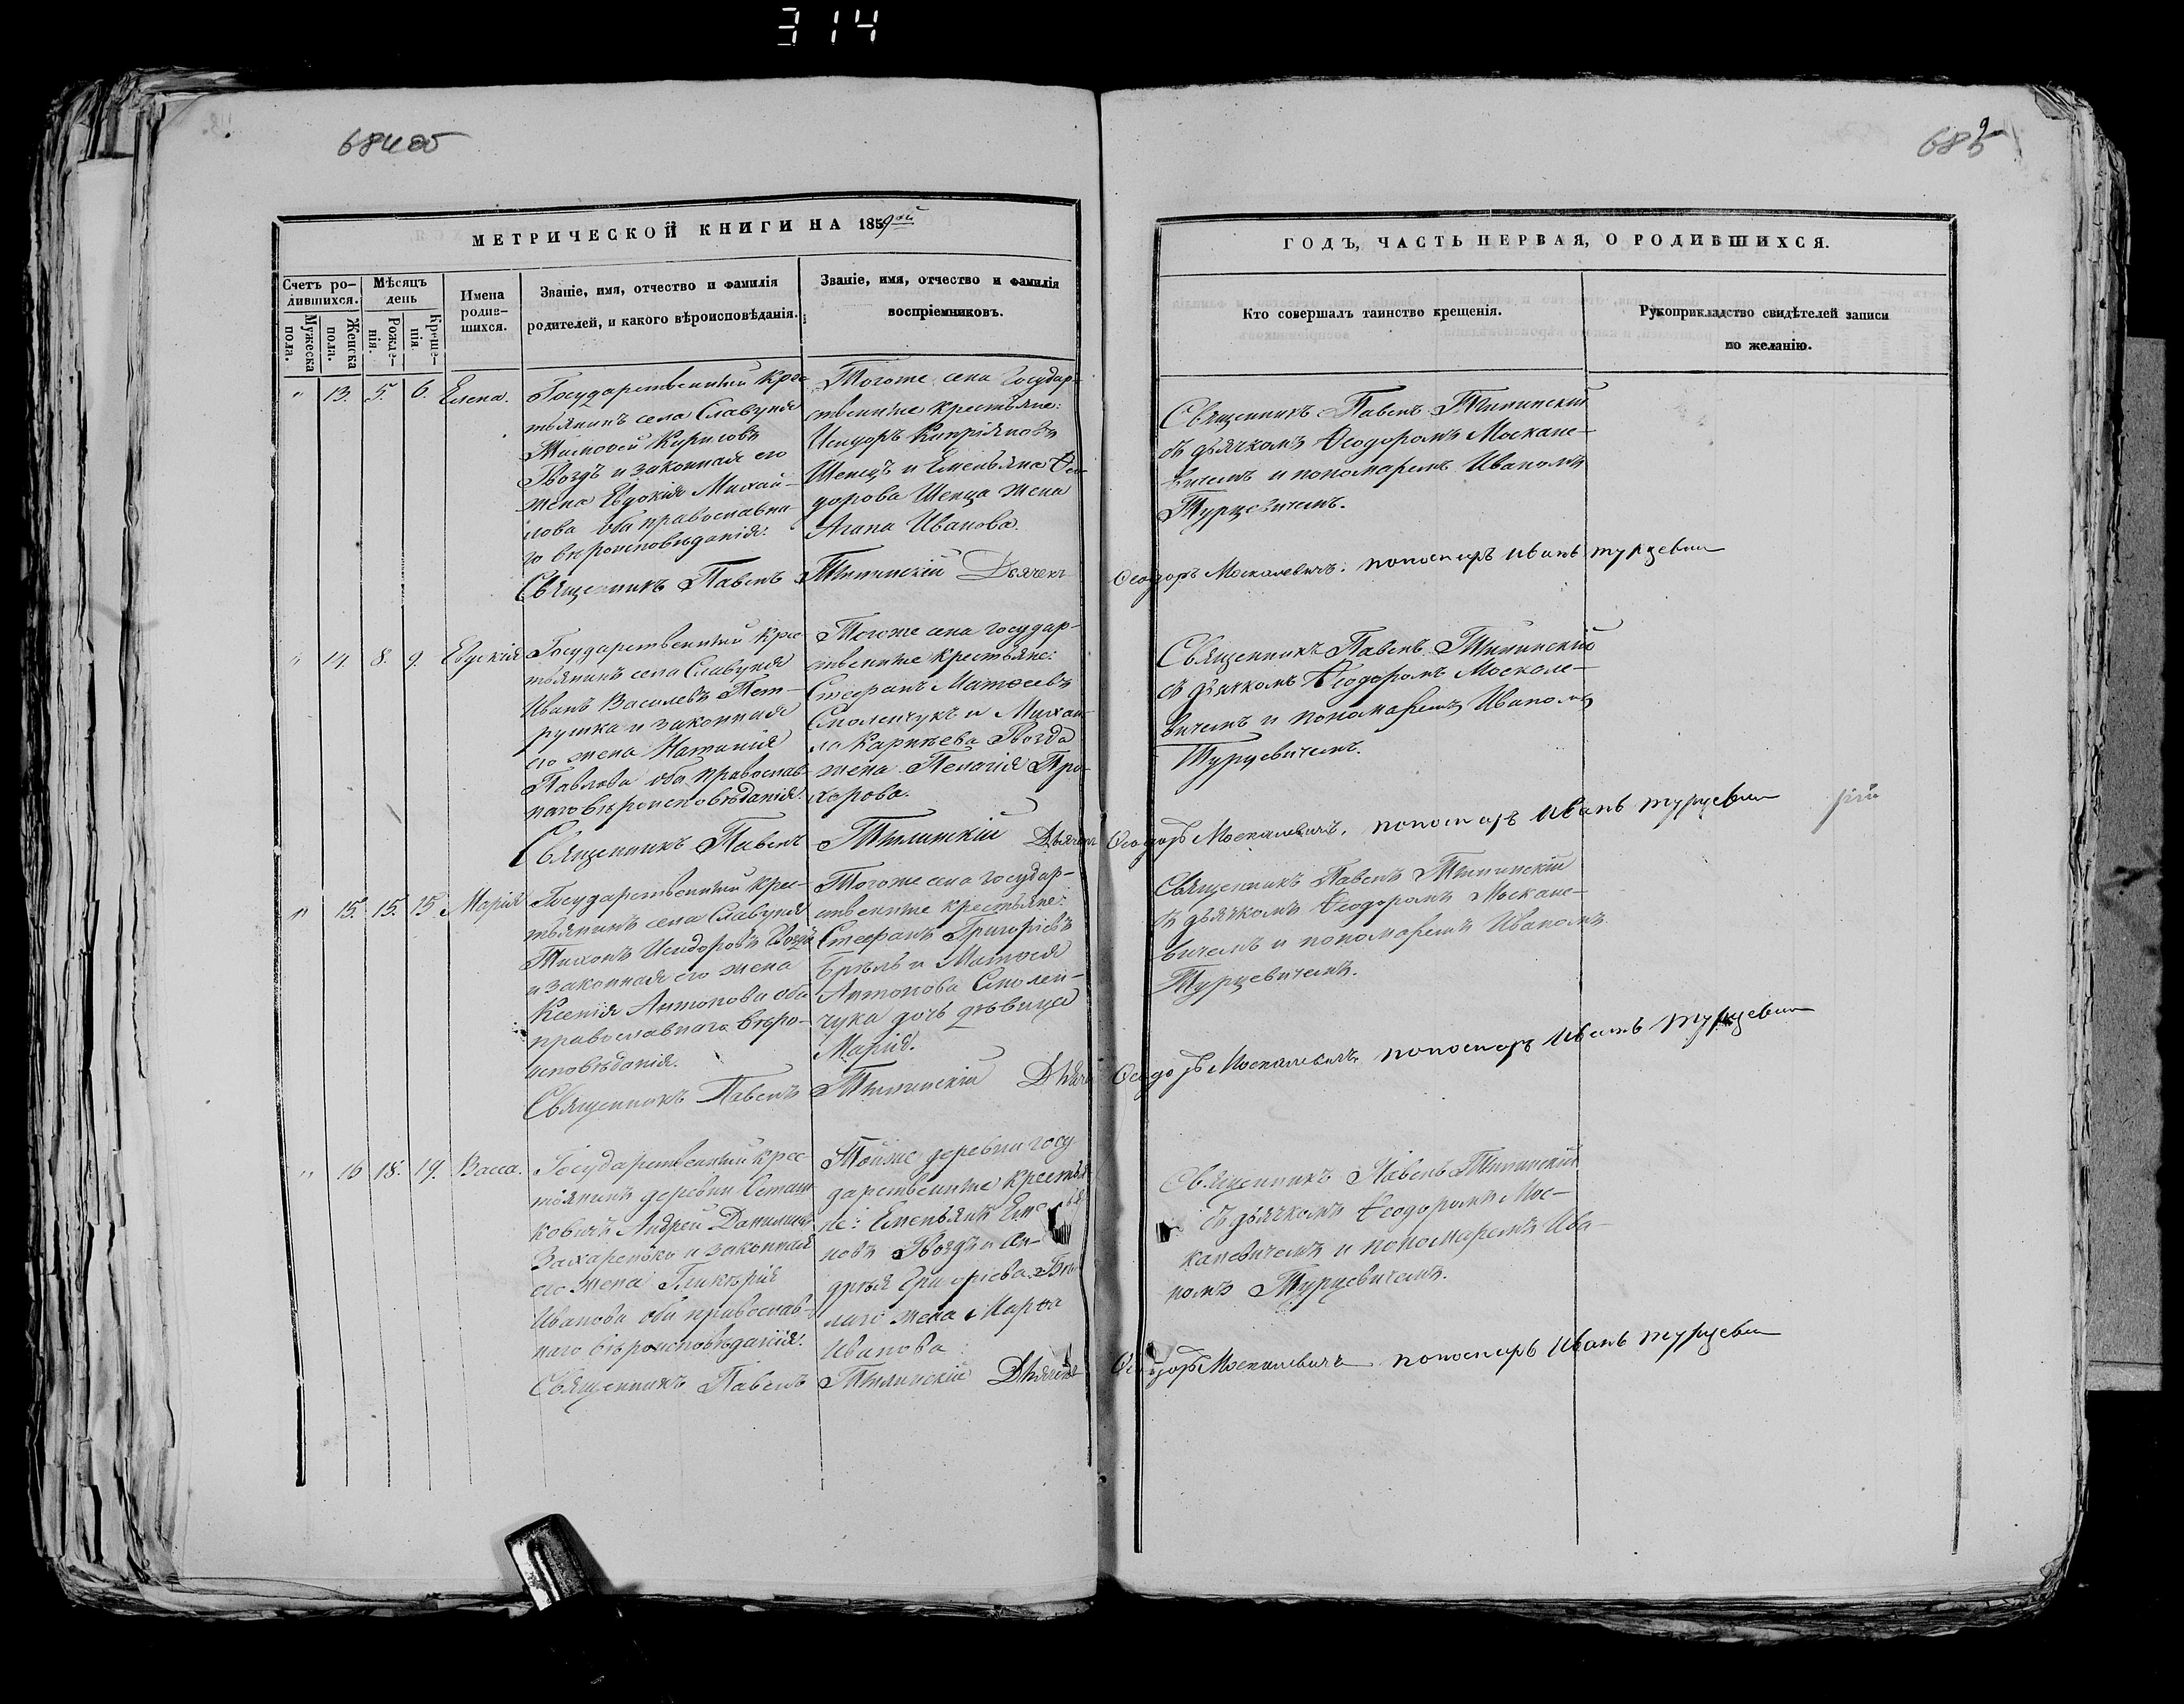 314
684об
685
9
МЕТРИЧЕСКОЙ КНИГИ НА 1859ой
Счетъ ро-
дившихся.
Мѣсяцъ
день
Имена
родив-
шихся.
Званіе, имя, отчество и фамилія
родителей, и какого вѣроисповѣданія.
Званіе, имя, отчество и фамилія
воспріемниковъ.
Мужеска
пола.
Женска
пола.
Рожде-
нія.
Креще-
нія
ГОДЪ, ЧАСТЬ ПЕРВАЯ, О РОДИВШИХСЯ.
Кто совершалъ таинство крещенія.
Рукоприкладство свидѣтелей записи
по желанію.
" 13. 5. 6. Елена.
Государственный крес
тьянинъ села Славуня
Тимофей Кирисовъ
Гвоздъ и законная его
жена Евдокія Михай-
лова оба православна
го вѣроисповѣданія.
Тогоже села Государ-
ственные крестьяне:
Исидоръ Кипріяновъ
Шевецъ и Емельяна Фео
дорова Шевца жена
Агапа Иванова.
Священникъ Павелъ Тылинскій
съ дьячкомъ Феодоромъ Москале-
вичемъ и пономаремъ Иваномъ
Турцевичемъ.
Священникъ Павелъ Тылинскій Дьячекъ Феодоръ Москалевичъ. пономаръ Иванъ турцевич
" 14 8. 9. Евдокія
Государственный крес
тьянинъ села Славуня
Иванъ Василевъ Пет-
рушка и законная
его жена Наталія
Павлова оба православ-
наго вѣроисповѣданія.
Тогоже села государ-
ственные крестьяне:
Стефанъ Матфеевъ
Смоленчукъ и Михаи-
ла Карпѣева Гвозда
жена Пелагія Про-
хорова.
Священникъ Павелъ Тылинскій
съ дьячкомъ Феодоромъ Москале-
вичемъ и пономаремъ Иваномъ
Турцевичемъ.
Священникъ Павелъ Тылинскій Дьячекъ Феодоръ Москалевичъ. пономаръ Иванъ турцевич
" 15. 15. 15. Марія
Государственный крес-
тьянинъ села Славуня
Тихонъ Исидоровъ Гвоздъ
и законная его жена
Ксенія Антонова оба
православнаго вѣро-
исповѣданія.
Тогоже села государ-
ственные крестьяне:
Стефанъ Григоріевъ
Брель и Матфея
Антонова Смолен-
чука дочь дѣвица
Марія.
Священникъ Павелъ Тылинскій
съ дьячкомъ Феодоромъ Москале-
вичемъ и пономаремъ Иваномъ
Турцевичемъ.
Священникъ Павелъ Тылинскій Дьячекъ Феодоръ Москалевичъ пономаръ Иванъ турцевич
" 16 18. 19. Васса.
Государственный крес
тьянинъ деревни Сташ
ковичъ Андрей Даниловъ
Захаренко и законная
его жена Гликерія
Иванова оба православ-
наго вѣроисповѣданія.
Тойже деревни госу
дарственные крестья
не: Емельянъ
новъ Гвоздъ и Ан-
дрея Григоріева
жена Марфа
Иванова
Священникъ Павелъ Тылинскій
съ дьячкомъ Феодоромъ Мос-
калевичемъ и пономаремъ Ива-
номъ Турцевичемъ.
Священникъ Павелъ Тылинскій Дьячекъ Феодоръ Москалевичъ пономаръ Иванъ турцевич